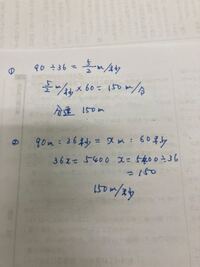 ① 90 ÷ 36 = 5/2 m/秒
5/2 m/秒 × 60 = 150 m/分
分速 150m
② 90m : 36秒 = x m : 60秒
36x = 5400 x = 5400 ÷ 36
= 150
150m/秒